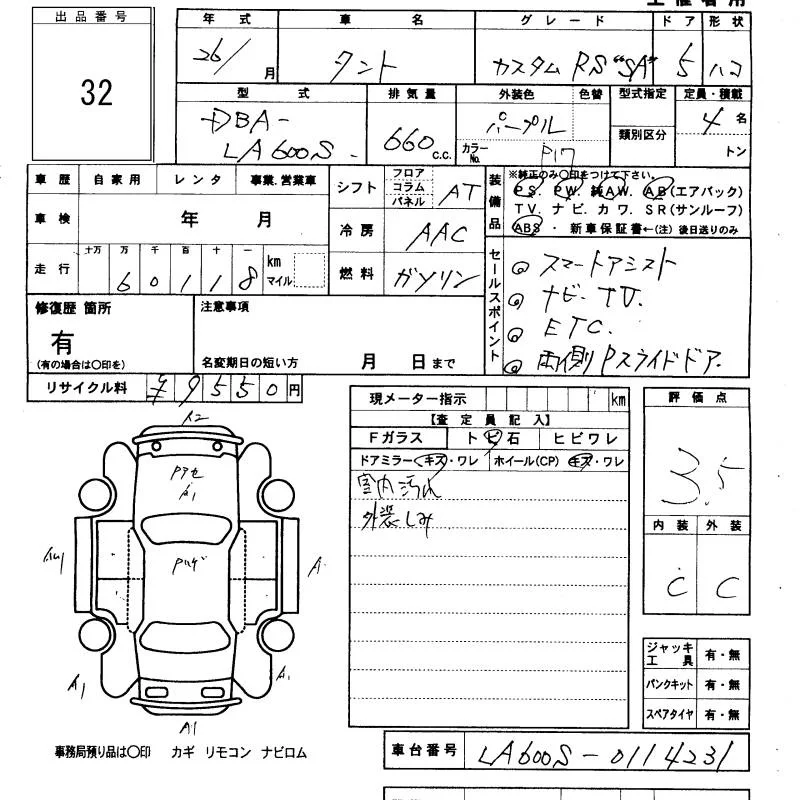 出品番号
32
年式 車名 グレード ドア 形状
26/ 月 タント カスタム RS "SA" 5 ハコ
型式 排気量 外装色 色替 型式指定 定員・積載
DBA- パープル 類別区分 4 名
LA600S 660 c.c. カラーNo. P17 トン
車歴 自家用 レンタ 事業.営業車
車検 年 月
走行 十万 万 千 百 十 一 km マイル
6 0 1 1 8
シフト フロア コラム パネル AT
冷房 AAC
燃料 ガソリン
装備品
※純正のみ○印をつけて下さい。
PS. PW. 純AW. AB(エアバック)
TV. ナビ. カワ. SR(サンルーフ)
ABS ・ 新車保証書←(注) 後日送りのみ
セールスポイント
スマートアシスト
ナビ・TV.
ETC.
両側Pスライドドア.
修復歴 箇所
有
(有の場合は○印を)
注意事項
名変期日の短い方 月 日まで
リサイクル料 ¥ 9 5 5 0 円
現メーター指示 km
【査定員記入】
Fガラス ト ビ 石 ヒビワレ
ドアミラー キズ・ワレ ホイール(CP) キズ・ワレ
室内汚れ
外装しみ
評価点
3.5
内装 外装
C C
ジャッキ 工具 有・無
パンクキット 有・無
スペアタイヤ 有・無
A
A1
A1
A1
事務局預り品は○印 カギ リモコン ナビロム
車台番号 LA600S-0114231